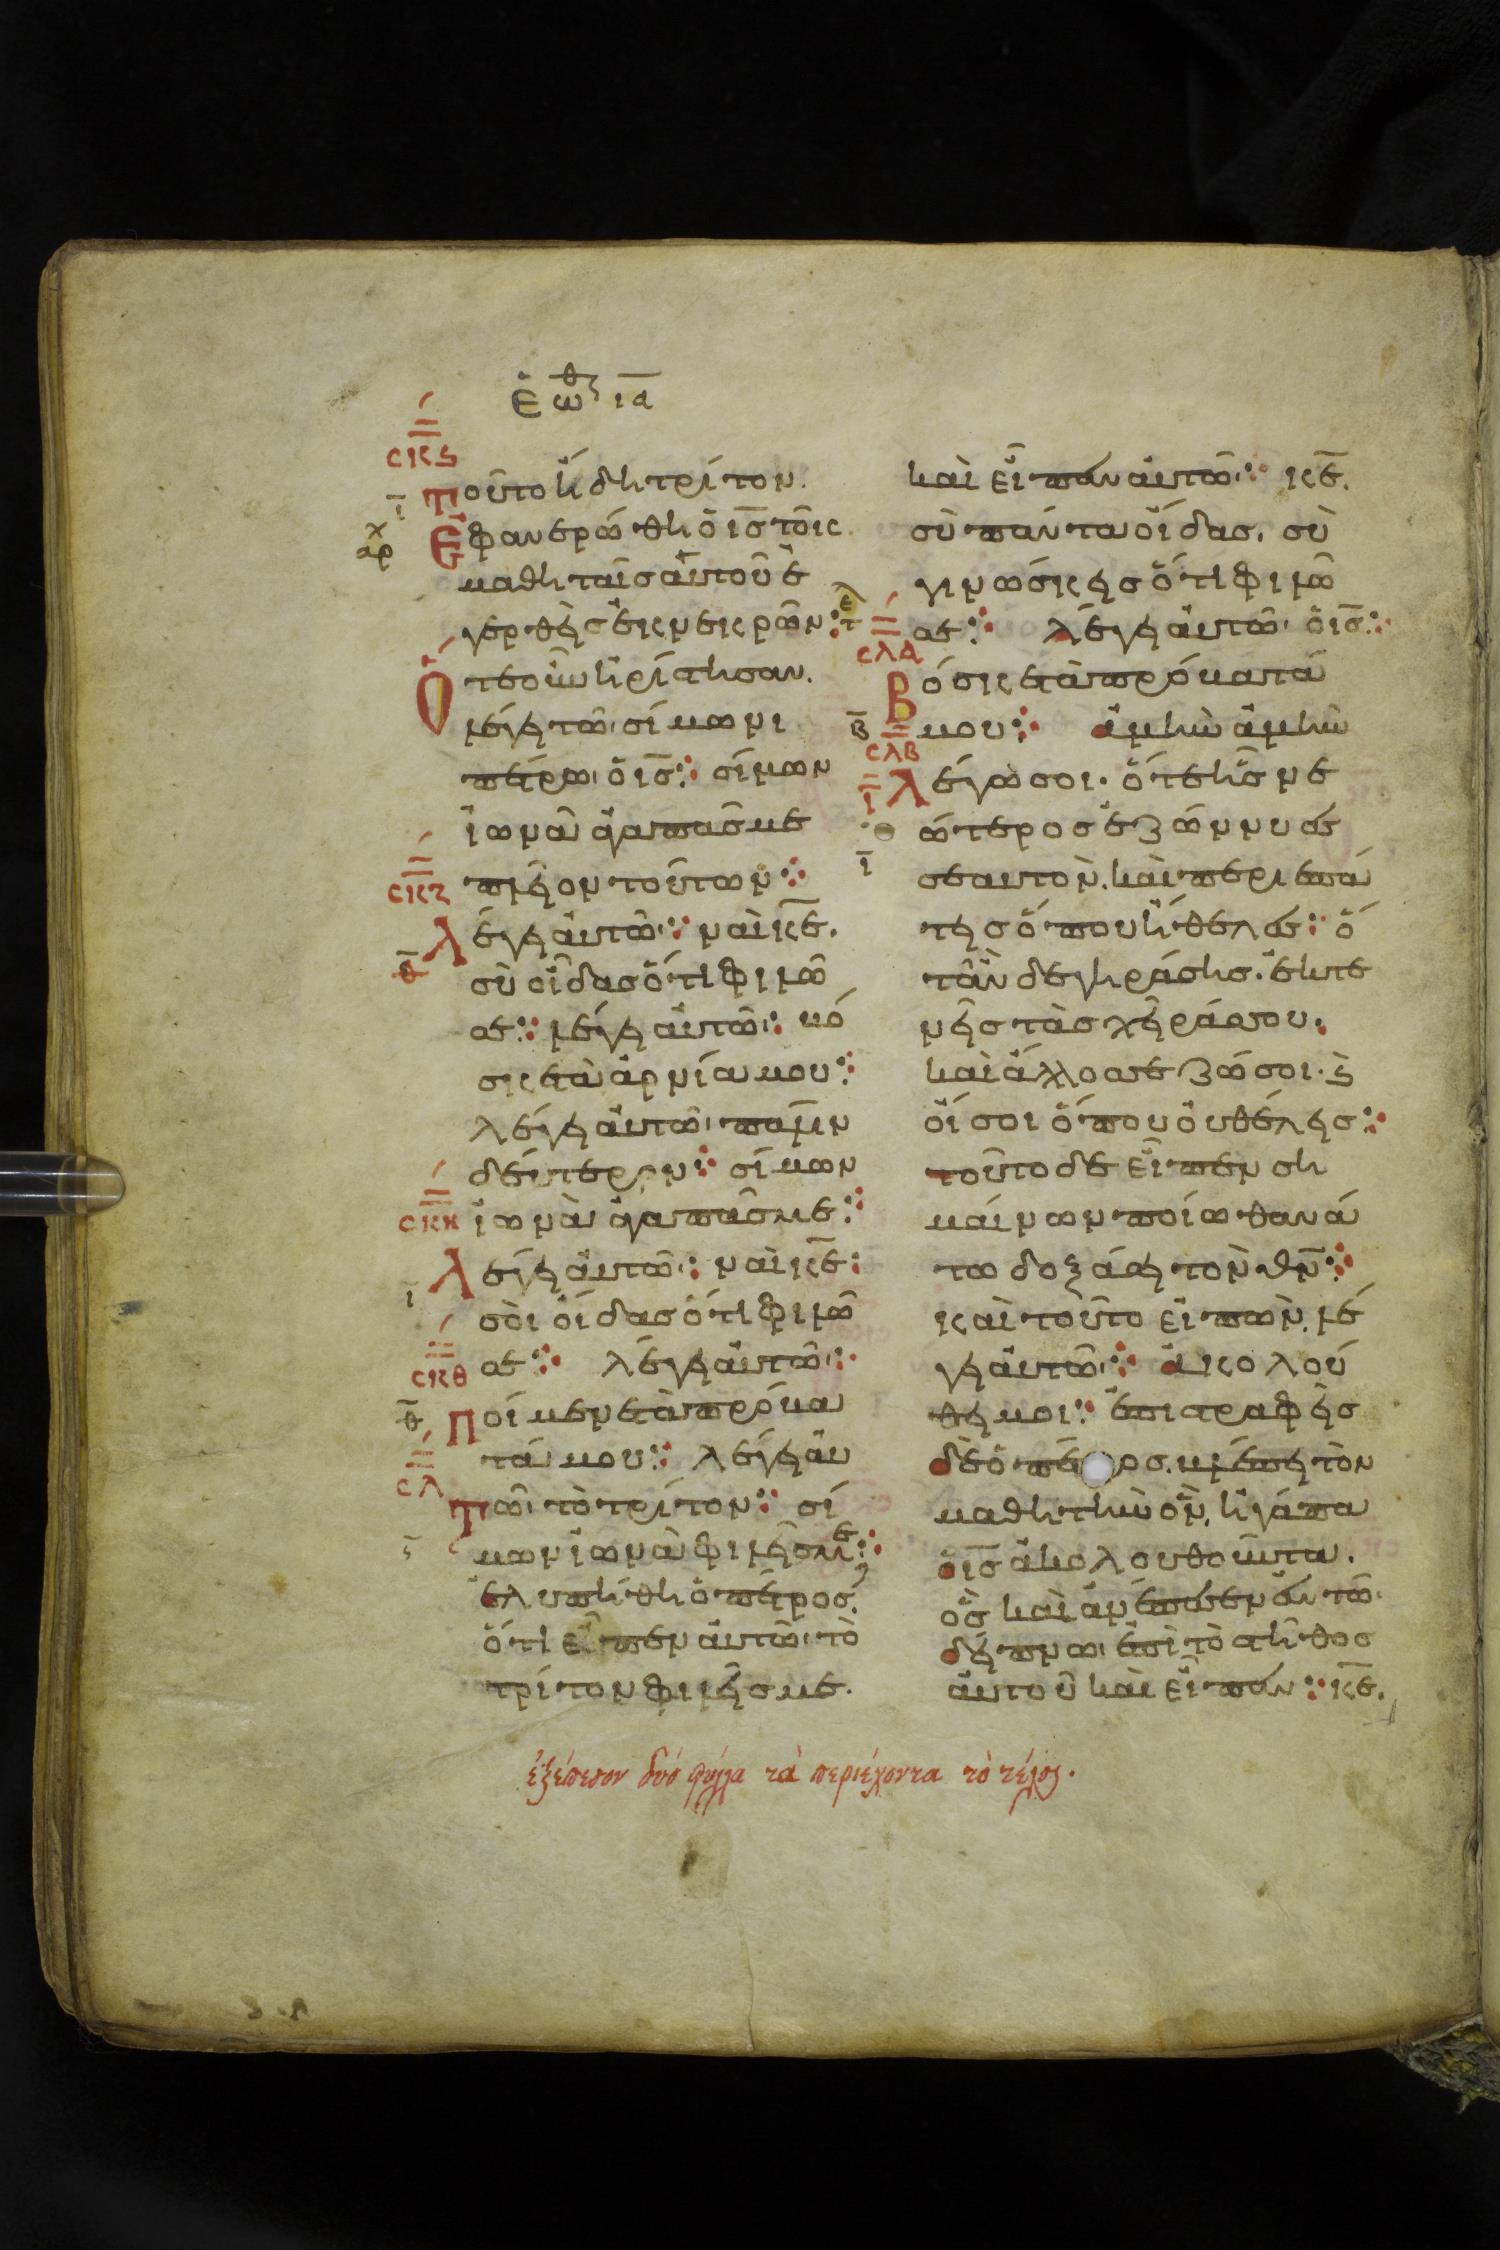 ἑω^θ ια
σκς
τοῦτο ἤδη τρίτον.
ἐφανερώθη ὁ ις τοῖς
μαθηταῖς αὐτοῦ ἐ
γερθεὶς ἐκ νεκρῶν:
ὅτε οὖν ἠρίστησαν.
λέγει τῶ σίμωνι
πέτρω ὁ ις: σίμων
ἰωνᾶ ἀγαπᾶς με
πλεῖον τούτων:
σκζ
λέγει αὐτῶ: ναὶ κε.
σὺ οἶδας ὅτι φιλῶ
σε: λέγει αὐτῶ: βό
σκε τὰ ἀρνία μου:
λέγει αὐτῶ πάλιν
δεύτερον: σίμων
σκη
ἰωνᾶ ἀγαπᾶς με:
λέγει αὐτῶ: ναὶ κε:
σοὶ οἶδας ὅτι φιλῶ
σκθ
σε: λέγει αὐτῶ:
ποίμενε τὰ πρόβα
τά μου: λέγει αὐ
σλ
τῶ τὸ τρίτον: σί
μων ἰωνᾶ φιλεῖς με:
ἐλυπήθη ὁ πέτρος,
ὅτι εἶπεν αὐτῶ τὸ
τρίτον φιλεῖς με.
καὶ εἶπεν αὐτῶ: κε.
σὺ πάντα οἶδας. σὺ
γινώσκεις ὅτι φιλῶ
σε: λέγει αὐτῶ ὁ ις:
σλα
βόσκε τὰ πρόβατά
μου: ἀμὴν ἀμὴν
σλβ
λέγω σοι. ὅτε ἦς νε
ώτερος ἐζώννυες
σεαυτὸν. καὶ περιεπά
τεις ὅπου ἤθελες: ὅ
τὰν δὲ γηράσης. ἐκτε
νεῖς τὰς χεῖράς σου.
καὶ ἄλλος σε ζώσει. καὶ
οἴσει ὅπου οὐ θέλεις:
τοῦτο δὲ εἶπεν ση
μαίνων ποίω θανά
τω δοξάσει τὸν θν:
καὶ τοῦτο εἰπὼν, λέ
γει αὐτῶ: ἀκολού
θει μοι: ἐπιστραφεὶς
δὲ ὁ πέτρος. βλέπει τὸν
μαθητὴν ὃν, ἠγάπα
ὁ ις ἀκολουθοῦντα.
ὃς καὶ ἀνέπεσεν ἐν τῶ
δείπνω ἐπὶ τὸ στῆθος
αὐτοῦ καὶ εἶπεν: κε.
ἐξέπεσον δύο φύλλα τὰ περιέχοντα τὸ τέλος.